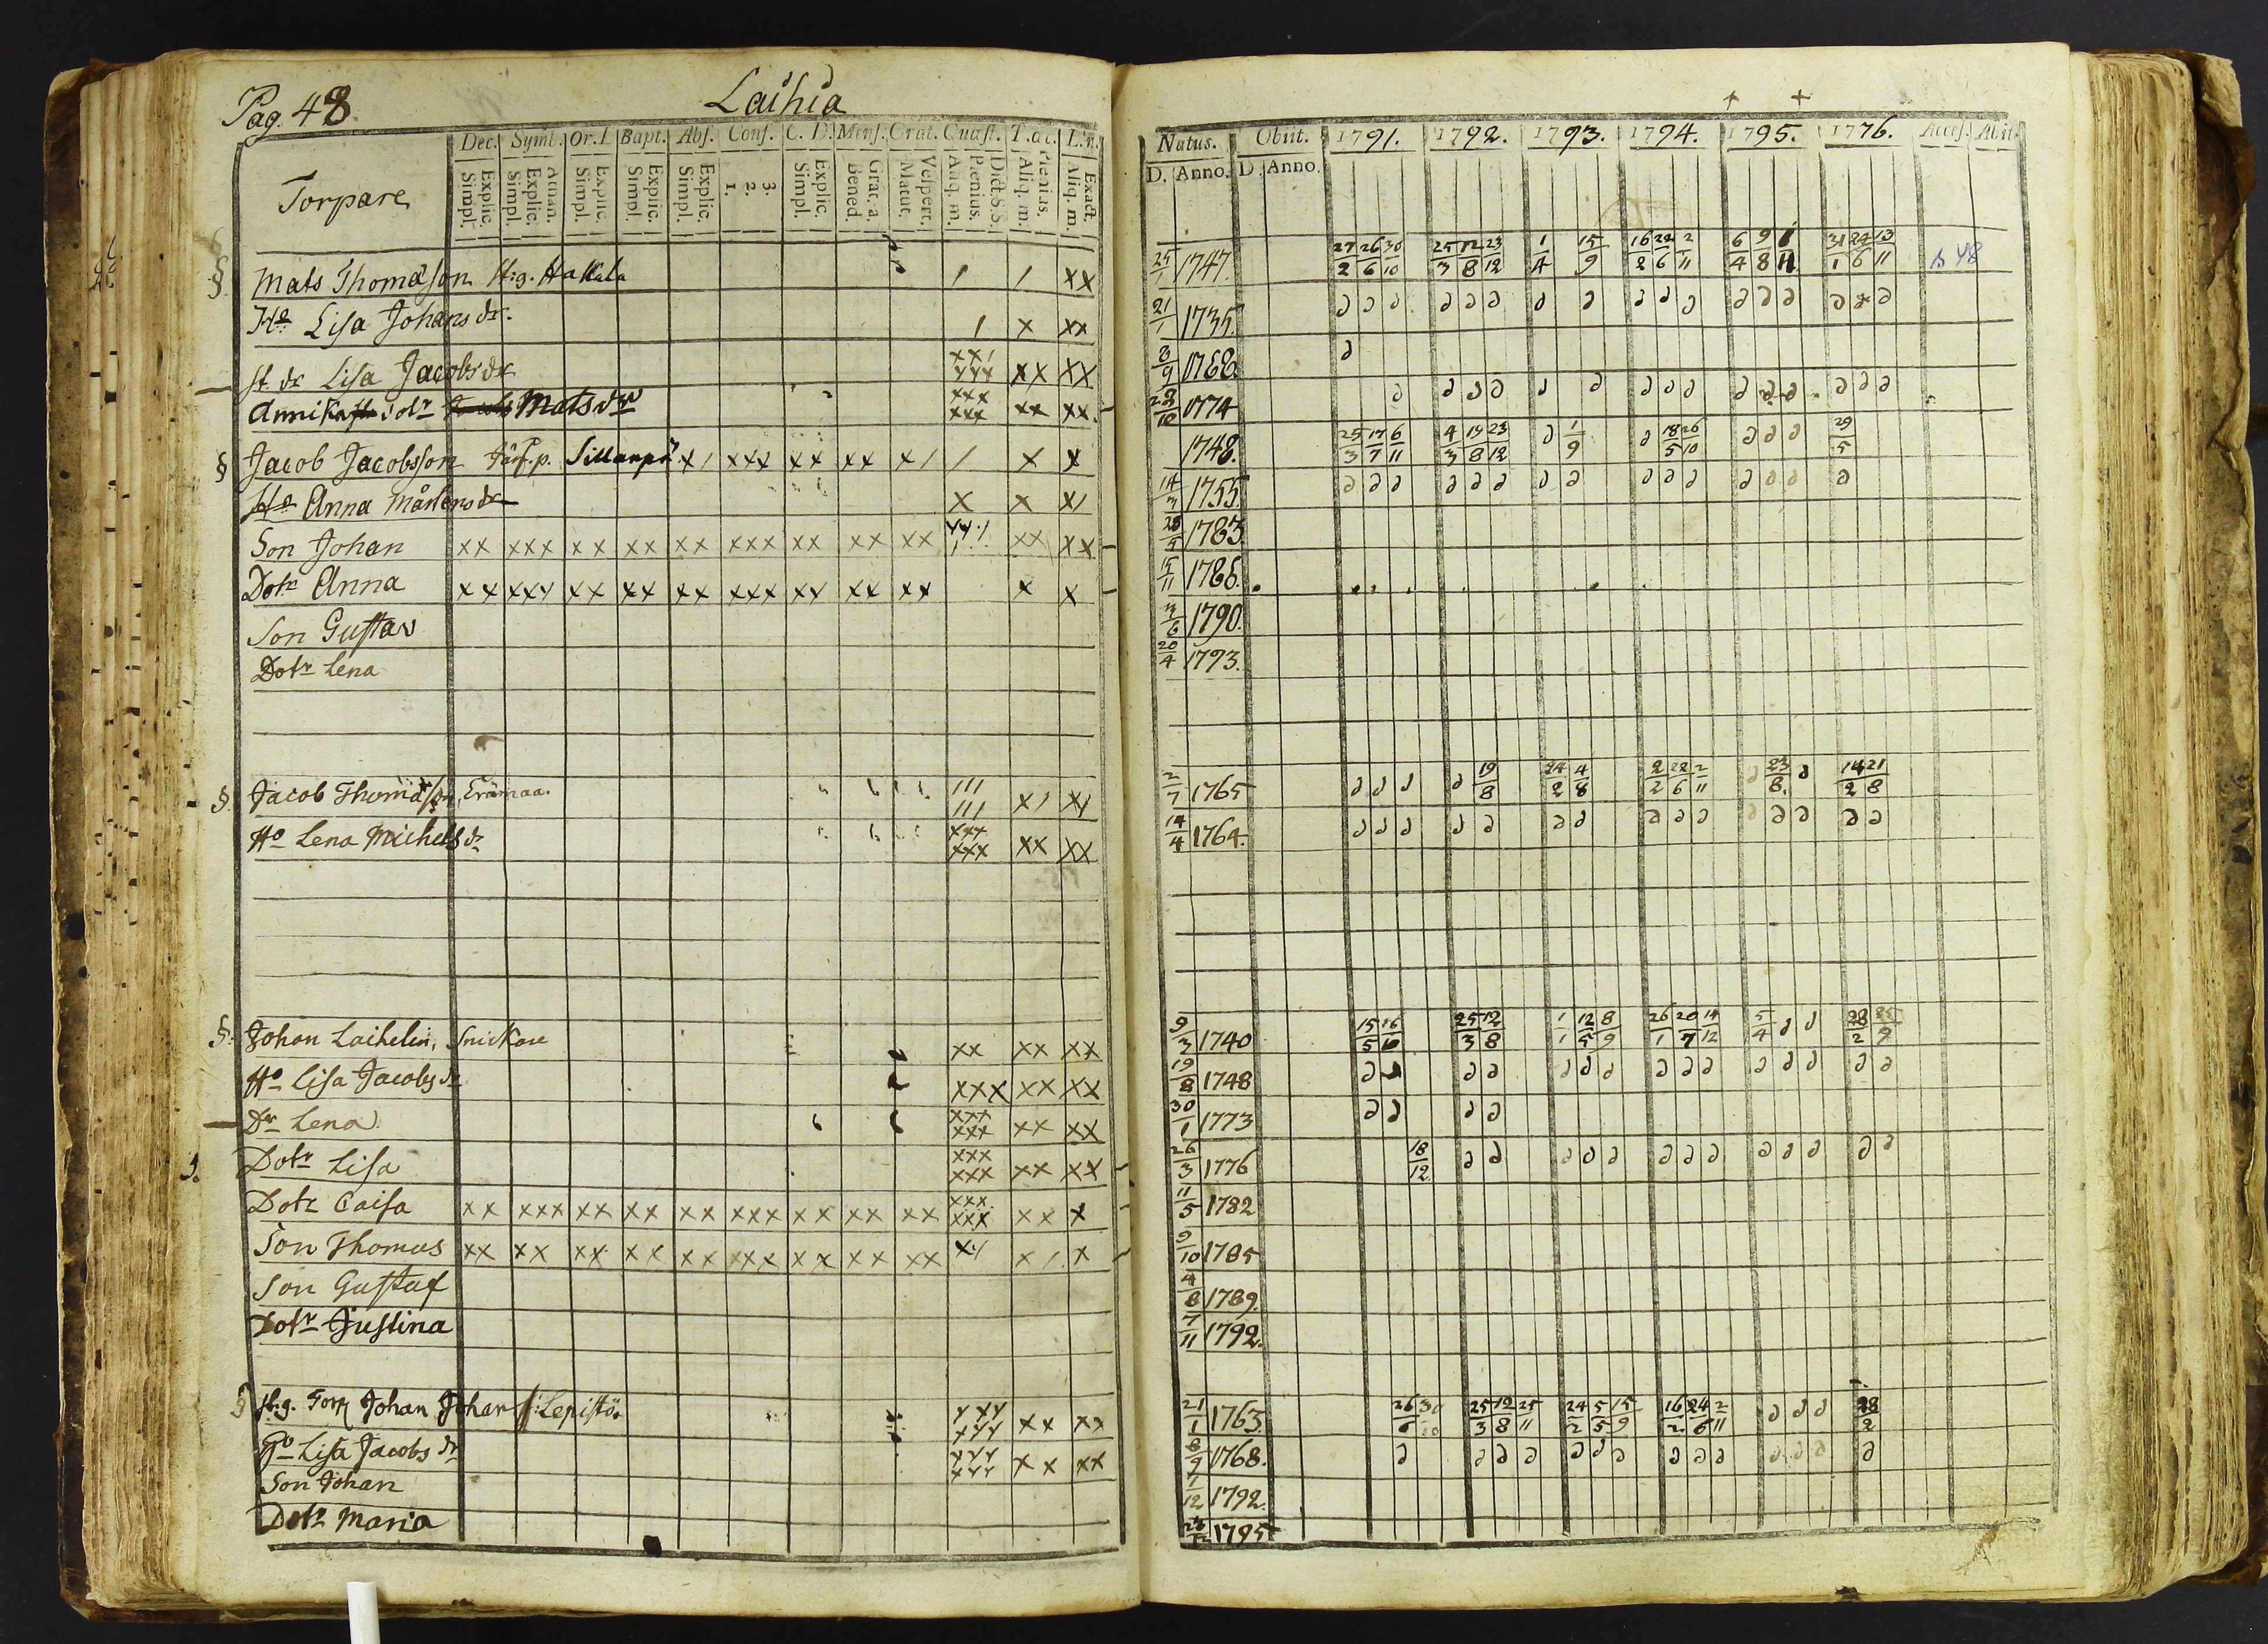 Pag. 48.
Laihia
Torpare
Dec. Symb. Or. D. Bapt. Abs. Conf. C. D. Mens. Orat. Quæst. T. a c. L. n.
Explic. Simpl. Athan. Explic. Simpl. Explic. Simpl. Explic. Simpl. Explic. Simpl. 3. 2. 1. Explic. Simpl. Grat. a. Bened. Vespert. Matut. Dict. S.S. Plenius. Aliq. m. Plenius. Aliq. m. Exact. Aliq. m.
§ Mats Thomasson, st:g. Hakkala / / xx
Ho Lisa Johans dr. / x xx
st. dr Lisa Jacobs dr xx/ xxx xx xx
Annika dotr Mats dr xxx xxx xx xx
§ Jacob Jacobsson Sillanpä x/ xxx xx xx x/ / x x
Ho Anna Mårtens dr x x x/
Son Johan xx xxx xx xx xx xxx xx xx xx xx/ xx xx
Dotr Anna xx xxx xx xx xx xxx xx xx xx x x
Son Gustav
Dotr Lena
§ Jacob Thomasson, Erämaa. /// /// x/ x/
Ho Lena Michels dr xxx xxx xx xx
§ Johan Laihelin, Snickare xx xx xx
Ho Lisa Jacobs dr xxx xx xx
Dr Lena xxx xxx xx xx
Dotr Lisa xxx xxx xx xx
Dotr Caisa xx xxx xx xx xx xxx xx xx xx xxx xxx xx x
Son Thomas xx xx xx xx xx xxx xx xx xx x/ x/ x
Son Gustaf
Dotr Justina
§ st.g. Torp Johan Johans s: Lepistö xxx xxx xx xx
Ho Lisa Jacobs dr xxx xxx xx xx
Son Johan
Dotr Maria
Natus. Obiit. 1791. 1792. 1793. 1794. 1795. 1776. Access. Abit.
D. Anno. D. Anno.
25/1 1747. 27/2 26/6 30/10 25/3 12/8 23/12 1/4 15/9 16/2 22/6 2/11 6/4 9/8 1/11 31/1 24/6 13/11 48
21/1 1735. d d d d d d d d d d d d d d d d d
8/9 1768. d
28/10 1774 d d d d d d d d d d d d d d d
1748. 25/3 17/7 6/11 4/3 19/8 23/12 d 1/9 d 18/5 26/10 d d d 29/5
14/3 1755. d d d d d d d d d d d d d d d
28/5 1783.
15/11 1786.
3/6 1790.
20/4 1793.
2/7 1765 d d d d 19/8 24/2 4/8 2/2 22/6 2/11 d 23/8 d 14/2 21/8
14/4 1764. d d d d d d d d d d d d d d d
9/3 1740 15/5 16/10 25/3 12/8 1/1 12/5 8/9 26/1 20/7 14/12 5/4 d d 28/2 25/9
19/8 1748 d d d d d d d d d d d d d d d
30/1 1773 d d d d
26/3 1776 18/12 d d d d d d d d d d d d d
11/5 1782
9/10 1785
4/8 1789.
7/11 1792.
21/1 1763. 26/6 30/10 25/3 12/8 25/11 24/2 5/5 15/9 16/2 24/6 2/11 d d d 28/2
8/9 1768. d d d d d d d d d d d d d d
1/12 1792.
23/12 1795